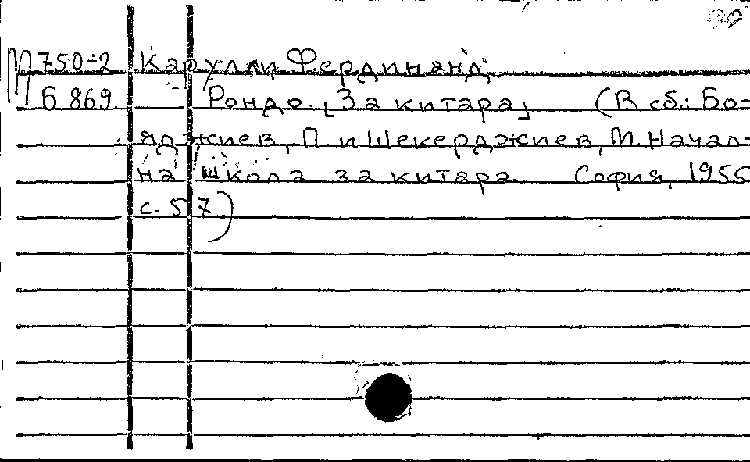 П 750-2 Карулли Фердинанд.
Б 869 Рондо [За китара] (В сб.: Бо-
яджиев, П. и Шекерджиев, М. Начал-
на школа за китара. София, 1955
с. 57)